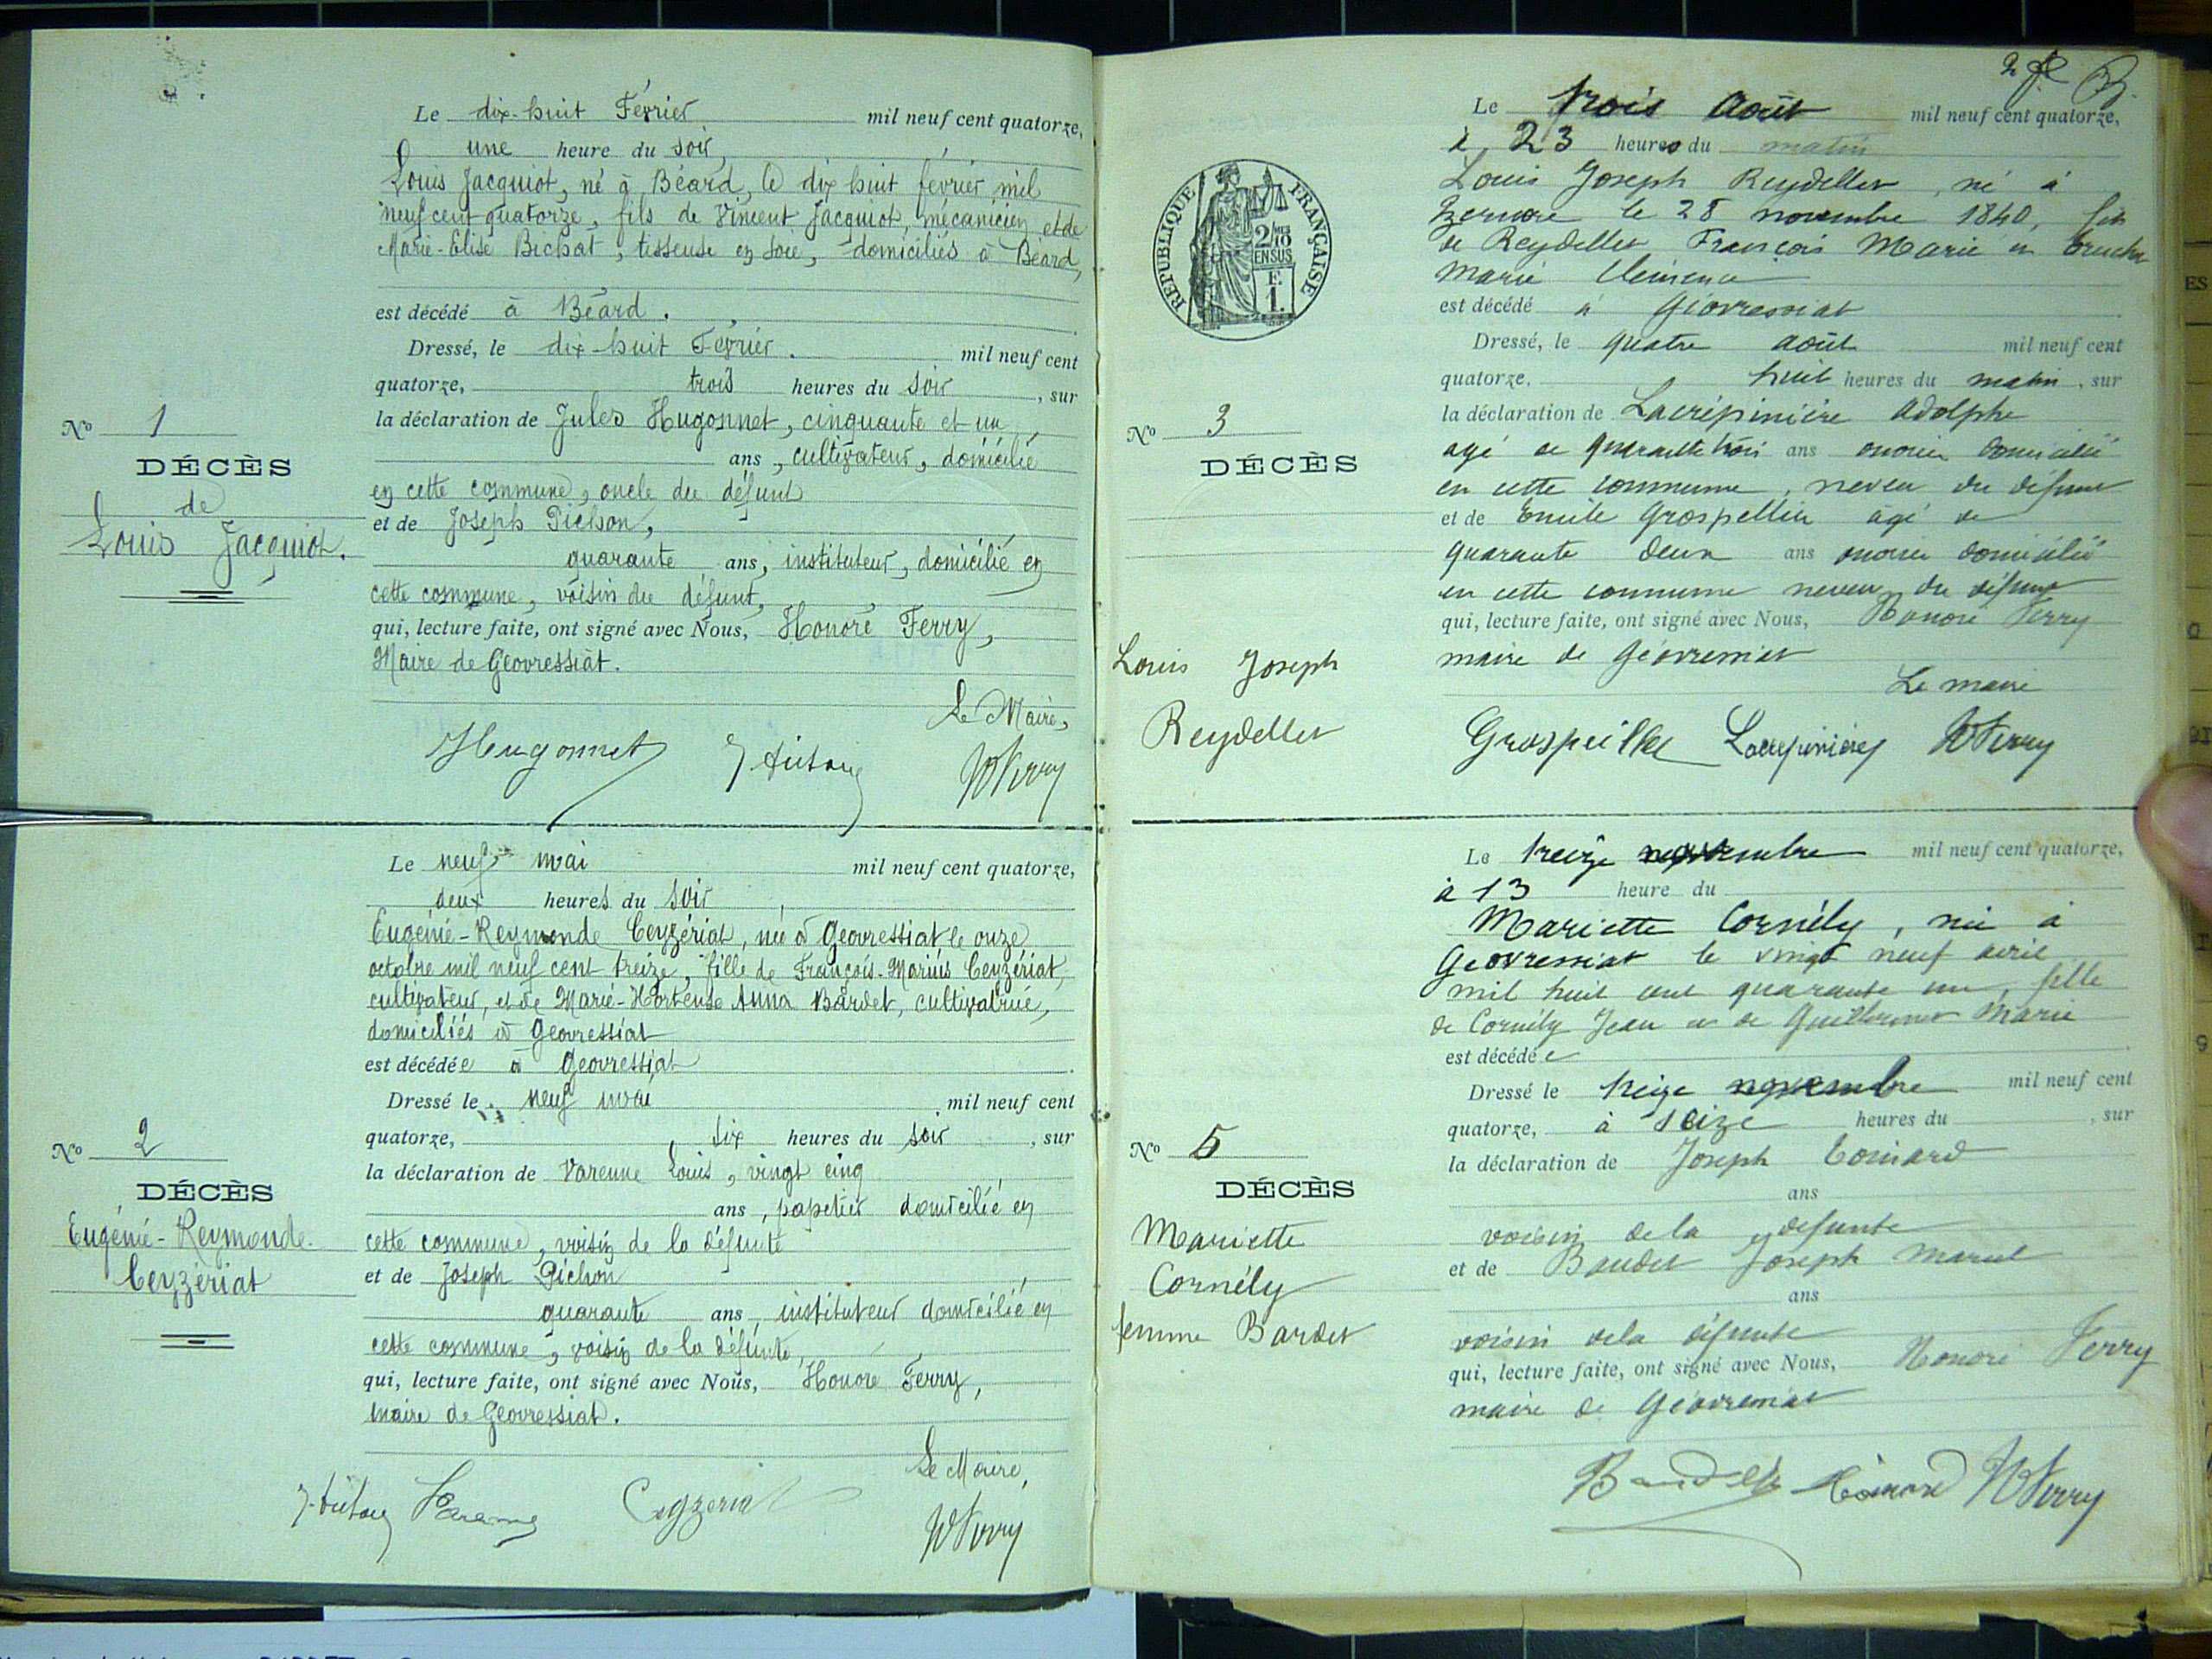 Le dix-huit Février mil neuf cent quatorze,
une heure du soir,
Louis Jacquiot, né à Béard, le dix huit février mil
neuf cent quatorze, fils de Vincent Jacquiot, mécanicien et de
Marie-Elise Bichat, tisseuse en soie, domiciliés à Béard,
est décédé à Béard.
Dressé, le dix-huit Février. mil neuf cent
quatorze, trois heures du soir, sur
la déclaration de Jules Hugonnet, cinquante et un
ans, cultivateur, domicilié
en cette commune, oncle du défunt
et de Joseph Pichon,
quarante ans, instituteur, domicilié en
cette commune, voisin du défunt,
qui, lecture faite, ont signé avec Nous, Honoré Ferry,
Maire de Géovressiat.
Le Maire,
Hugonnet HFerry
No 1
DÉCÈS
de
Louis Jacquiot.
Le neuf mai mil neuf cent quatorze,
deux heures du soir,
Eugénie-Reymonde Ceyzériat, née à Géovressiat le onze
octobre mil neuf cent treize, fille de François-Marius Ceyzériat,
cultivateur, et de Marie-Hortense Anna Bardet, cultivatrice,
domiciliés à Géovressiat
est décédée à Géovressiat.
Dressé le neuf mai mil neuf cent
quatorze, six heures du soir, sur
la déclaration de Varenne Louis, vingt cinq
ans, papetier domicilié en
cette commune, voisin de la défunte
et de Joseph Pichon
quarante ans, instituteur domicilié en
cette commune, voisin de la défunte,
qui, lecture faite, ont signé avec Nous, Honoré Ferry,
maire de Géovressiat.
Le Maire,
Varenne Ceyzeriat HFerry
No 2
DÉCÈS
Eugénie-Reymonde
Ceyzériat
2
Le trois Août mil neuf cent quatorze,
à 23 heures du matin
Louis Joseph Reydellet, né à
Izernore le 28 novembre 1840, fils
de Reydellet François Marie et
Marie Clémence
est décédé à Géovressiat
Dressé, le quatre août mil neuf cent
quatorze, huit heures du matin, sur
la déclaration de Lacrépinière Adolphe
agé de quarante trois ans ouvrier domicilié
en cette commune, neveu du défunt
et de Emile Grospellier âgé de
quarante deux ans ouvrier domicilié
en cette commune neveu du défunt
qui, lecture faite, ont signé avec Nous, Honoré Ferry
maire de Géovressiat
Le maire
Lacrépinière HFerry
RÉPUBLIQUE FRANÇAISE
2/10
EN SUS
F.
1.
No 3
DÉCÈS
Louis Joseph
Reydellet
Le treize novembre mil neuf cent quatorze,
à 13 heure du
Mariette Cornély, née à
Géovressiat le vingt neuf avril
mil huit cent quarante un, fille
de Cornély Jean et de Guillermet Marie
est décédée
Dressé le treize novembre mil neuf cent
quatorze, à seize heures du, sur
la déclaration de Joseph
ans
voisin de la défunte
et de Baudet Joseph Marcel
ans
voisin de la défunte
qui, lecture faite, ont signé avec Nous, Honoré Ferry
maire de Géovressiat
HFerry
No 5
DÉCÈS
Mariette
Cornély
femme Bardet